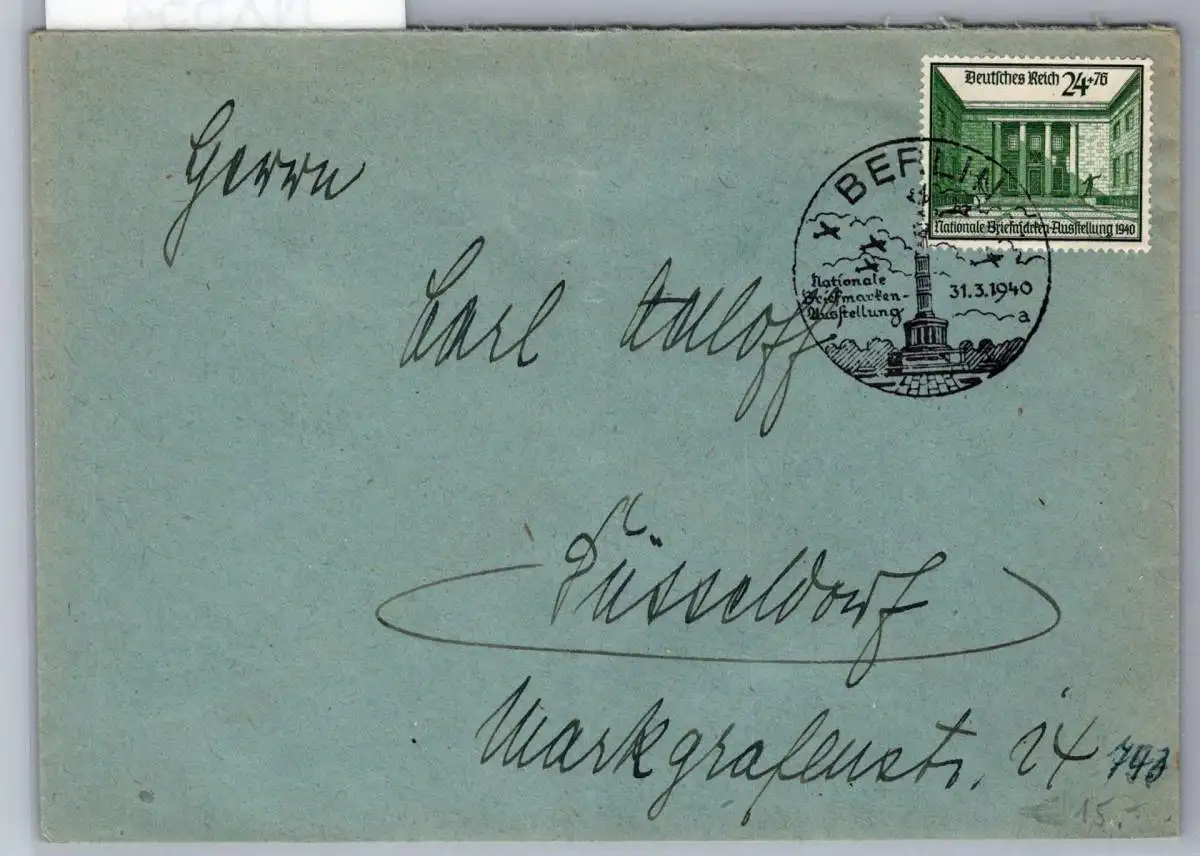 Deutsches Reich 24+76
Nationale Briefmarken-Ausstellung 1940
BERLIN
Nationale
Briefmarken-
Ausstellung
31.3.1940
a
Herrn
Carl
Düsseldorf
Markgrafenstr. 24
793
15.-